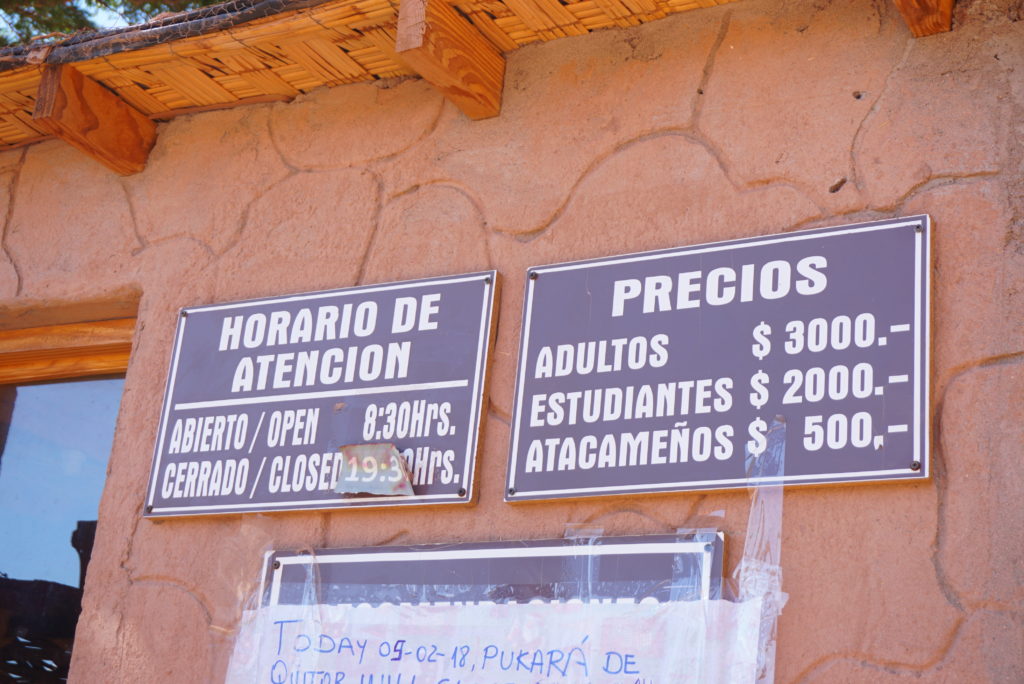 HORARIO DE
ATENCION
ABIERTO / OPEN 8:30Hrs.
CERRADO / CLOSED 19:30Hrs.
PRECIOS
ADULTOS $ 3000.-
ESTUDIANTES $ 2000.-
ATACAMEÑOS $ 500,-
TODAY 09-02-18, PUKARÁ DE
QUITOR WILL